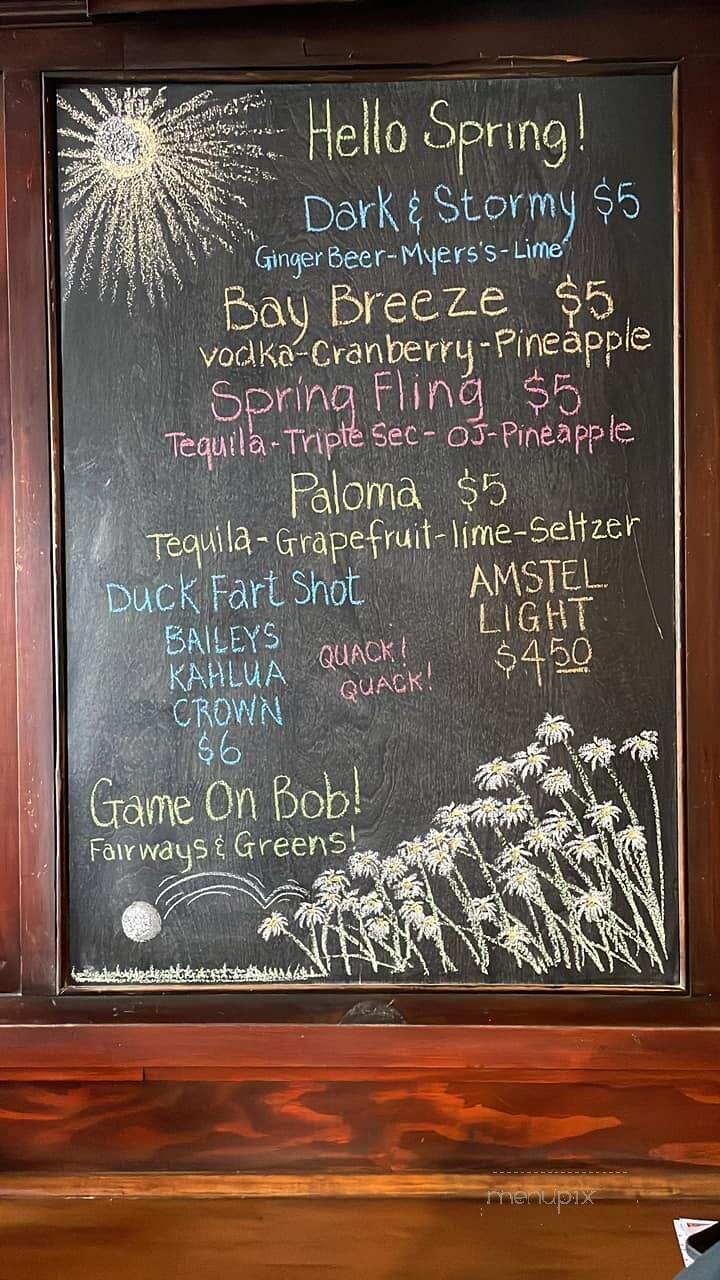 Hello Spring!
Dark & Stormy $5
Ginger Beer-Myers's-Lime
Bay Breeze $5
vodka-Cranberry-Pineapple
Spring Fling $5
Tequila-Triple Sec-OJ-Pineapple
Paloma $5
Tequila-Grapefruit-lime-Seltzer
Duck Fart Shot
BAILEYS
KAHLUA
CROWN
$6
QUACK!
QUACK!
AMSTEL
LIGHT
$4 50
Game On Bob!
Fairways & Greens!
menupix